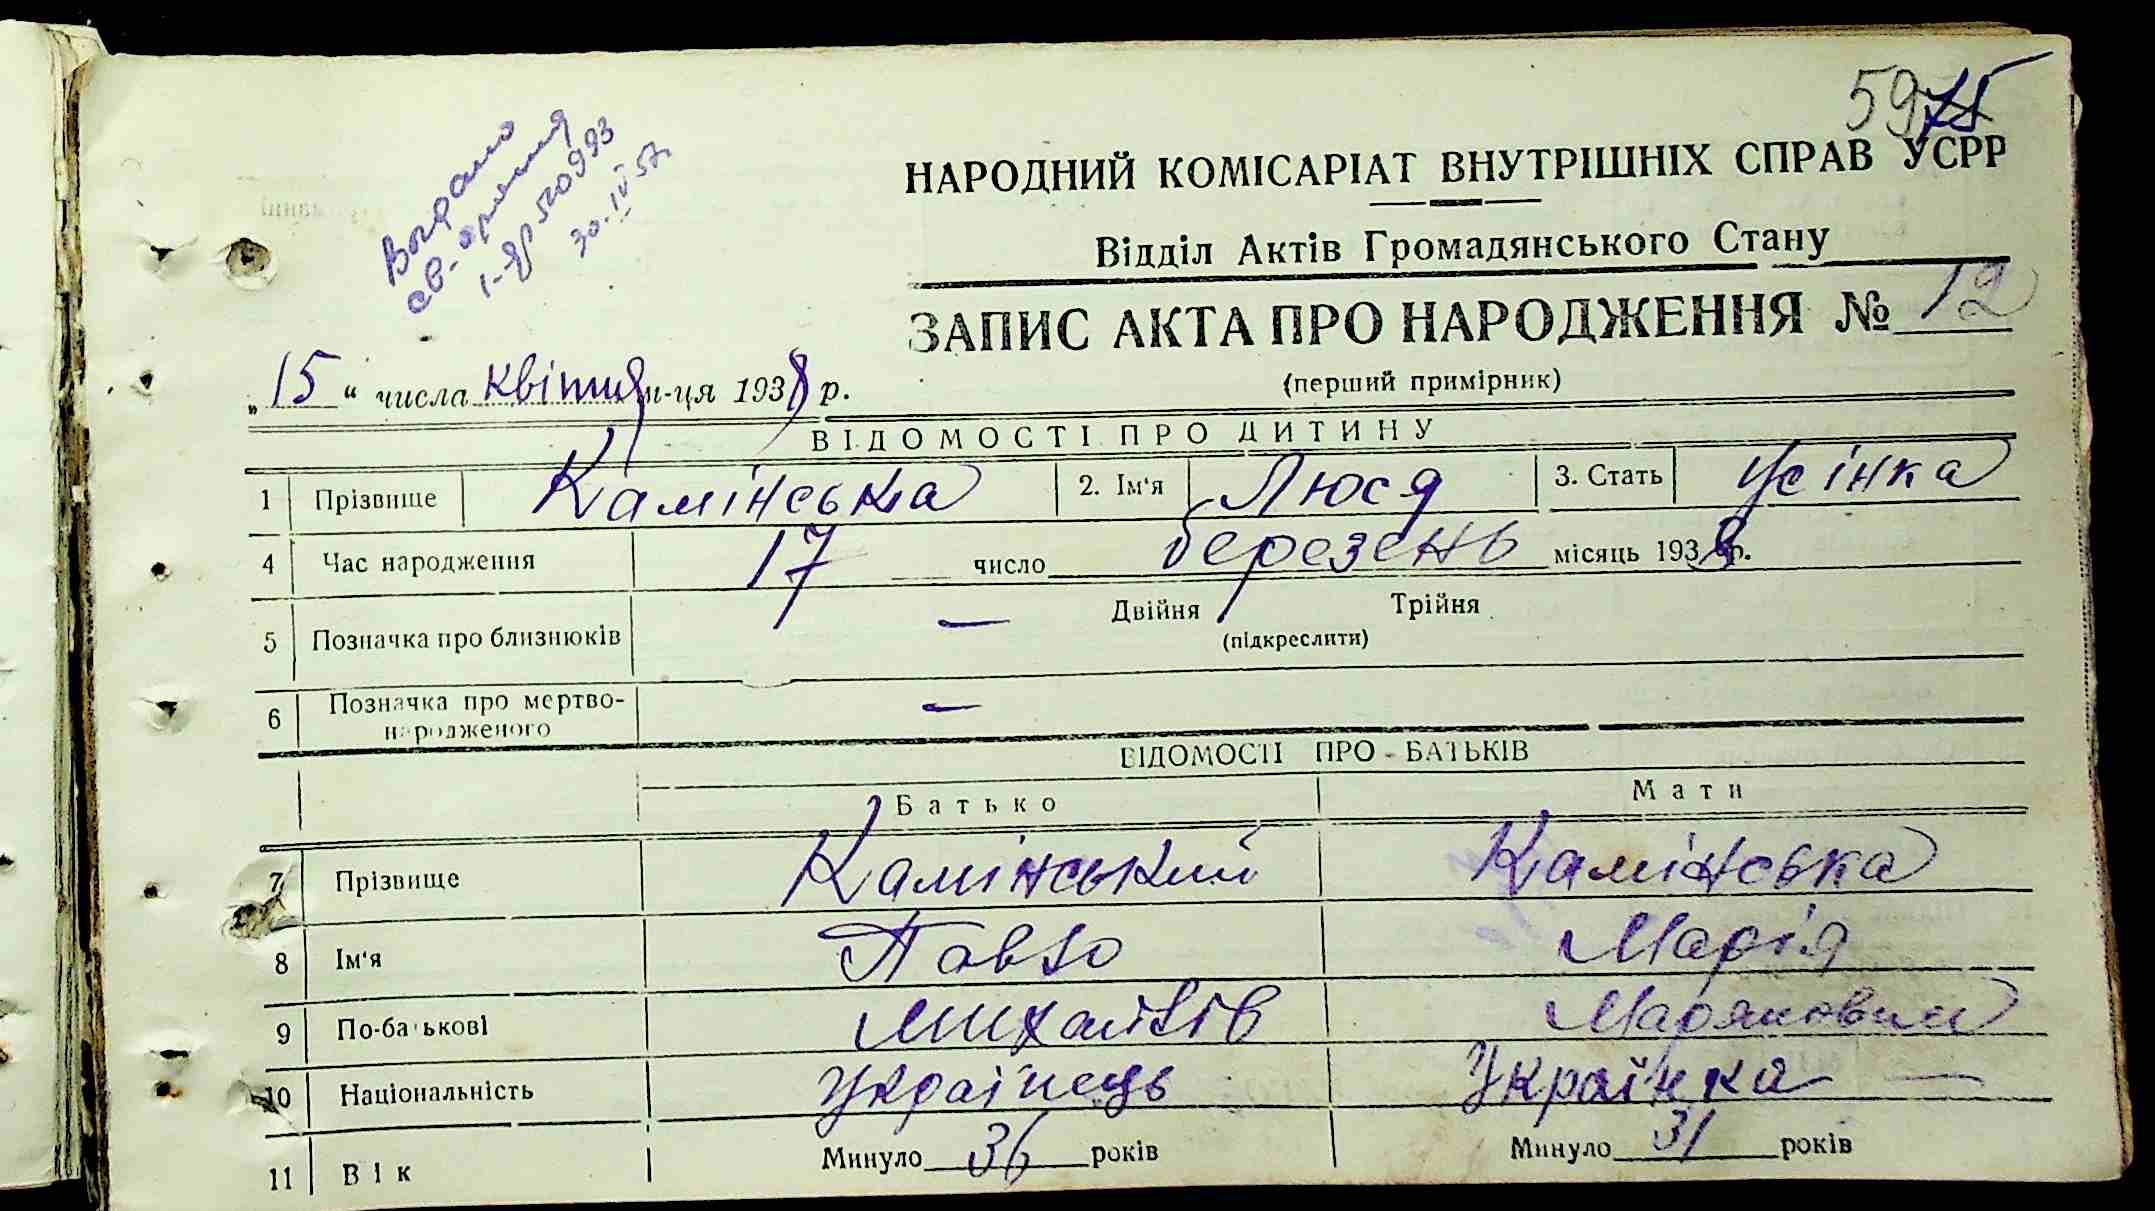 59 75
Видано
св-
1-ЯР 520993
30.IV 57.
НАРОДНИЙ КОМІСАРІАТ ВНУТРІШНІХ СПРАВ УСРР
Відділ Актів Громадянського Стану
ЗАПИС АКТА ПРО НАРОДЖЕННЯ № 12
(перший примірник)
„15“ числа квітня м-ця 1938 р.
ВІДОМОСТІ ПРО ДИТИНУ
1 Прізвище Камінська 2. Ім'я Люся 3. Стать
4 Час народження 17 число березень місяць 1938 р.
5 Позначка про близнюків — Двійня Трійня
(підкреслити)
6 Позначка про мертво-
народженого —
ВІДОМОСТІ ПРО БАТЬКІВ
Батько Мати
7 Прізвище Камінський Камінська
8 Ім'я Павло Марія
9 По-батькові
10 Національність Українець Українка —
11 Вік Минуло 36 років Минуло 31 років